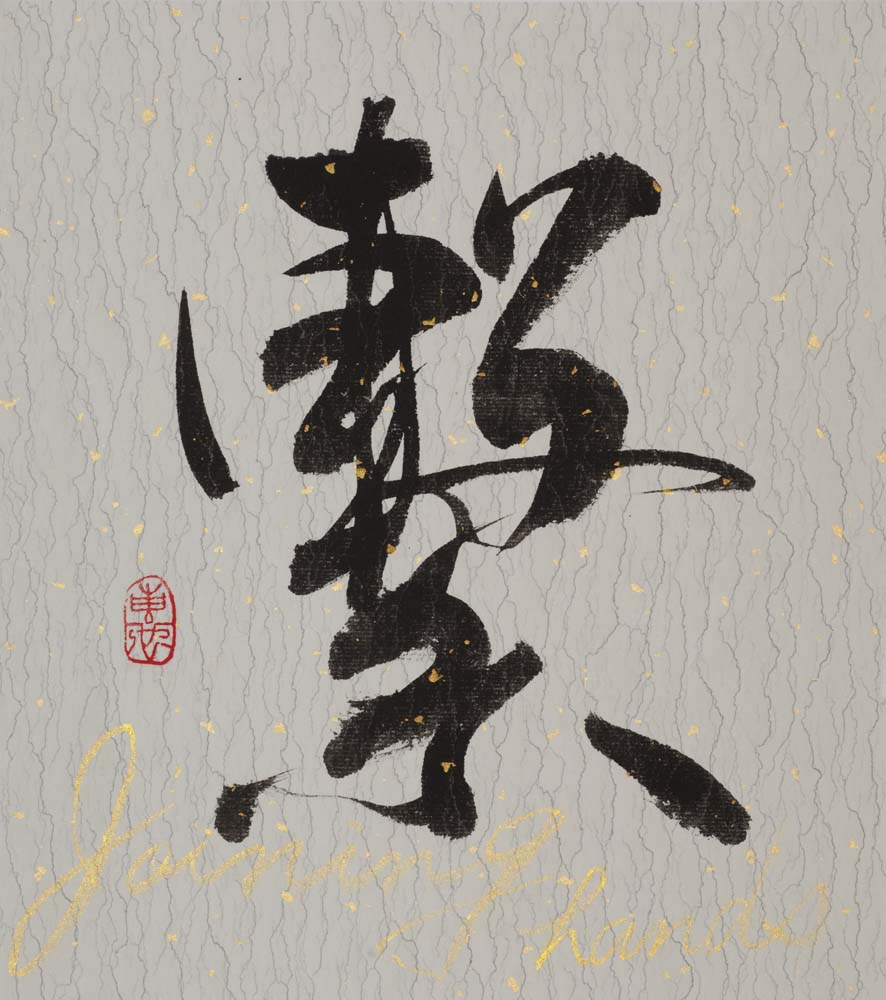 繫
Joining
hands